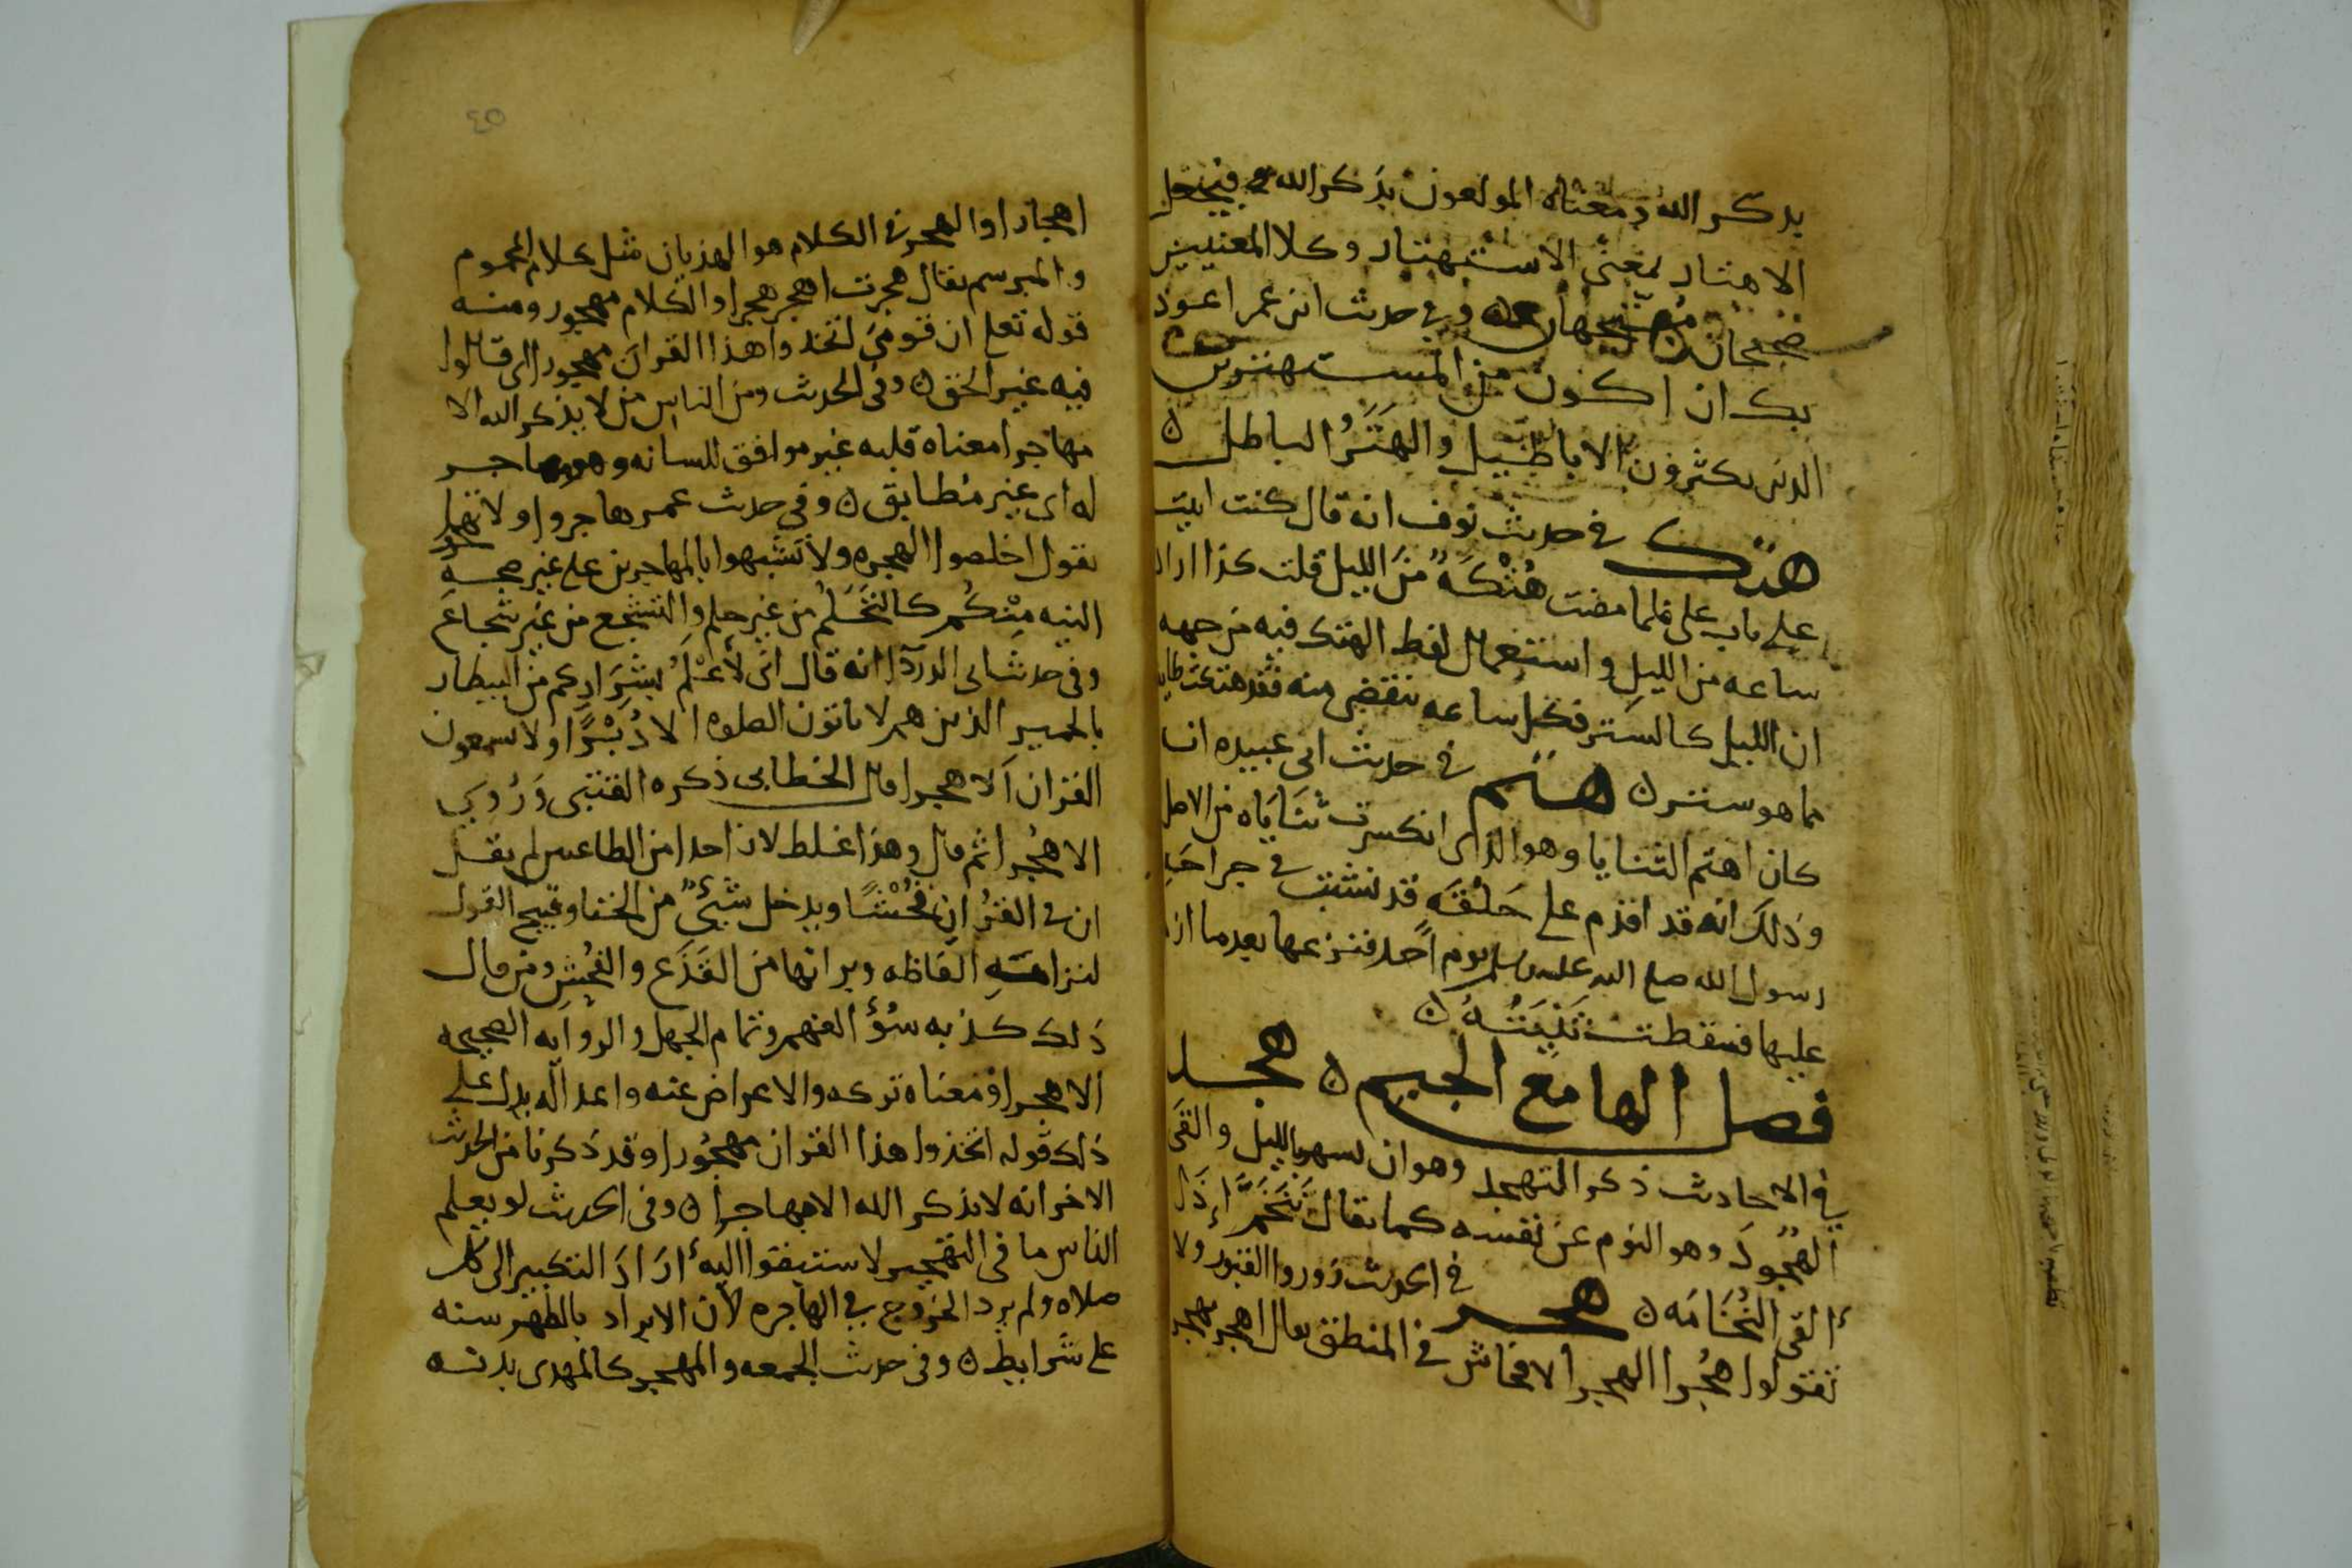 بذكر الله ومعناه المولعون بذكر الله فيجعل
الاهتار بمعنى الاستهتار وكلا المعنيين
صحيحان وفي حديث ابن عمر اعوذ
بك ان اكون من المستهترين
الذين يكثرون الاباطيل والهتر الباطل ه
هتك في حديث نوف انه قال كنت ابيت
على باب علي فلما مضت هُتْكَةٌ من الليل قلت كذا اراد
ساعه من الليل واستعمال لفظ الهتك فيه من جهه
ان الليل كالستر فكل ساعه تنقضي منه فقد هتكت طايفه
مما هو ستر ه هتم في حديث ابي عبيده انه
كان اهتم الثنايا وهو الذي انكسرت ثناياه من الاصل
وذلك انه قد ازم على حَلْقَه قد نشبت في جراحه
رسول الله صلى الله عليه وسلم يوم احد فنزعها بعدما ازم
عليها فسقطت ثَنِيَّتُهُ ه
فصل الها مع الجيم ه هجد
في الاحاديث ذكر التهجد وهو ان يسهر بالليل والقى
الهُجودَ وهو النوم عن نفسه كما يقال تَنَخَّمَ اذا
القى النُخَامَه ه هجر في الحديث زوروا القبور ولا
تقولوا هُجرا الهجر الافحاش في المنطق يقال اهجر يهجر
٤٥
اهجارا والهجر في الكلام هو الهذيان مثل كلام المحموم
والمبرسم يقال هجرت اهجر هجرا والكلام مهجور ومنه
قوله تعلى ان قومي اتخذوا هذا القران مهجورا اي قالوا
فيه غير الحق ه وفي الحديث ومن الناس من لا يذكر الله الا
مهاجرا معناه قلبه غير موافق للسانه وهو مهاجر
له اي غير مطابق ه وفي حديث عمر هاجروا ولا تهجروا
يقول اخلصوا الهجره ولا تشبهوا بالمهاجرين على غير صحه
النيه مِنْكُم كالتَحَلُّم من غير حلم والتشجع من غير شجاعه
وفي حديث ابي الدردآ انه قال اني لأعْلَمُ بِشِرَارِكم من البيطار
بالحمير الذين هم لا ياتون الصلوه الا دُبْرًا ولا يسمعون
القران الا هجرا قال الخطابي ذكره القتبي وَرُوِيَ
الا هُجرا ثم قال وهذا غلط لان احدا من الطاعنين لم يقل
ان في القُرْان فُحْشًا ويدخل شيئٌ من الخنا وقبيح القول
لنزاهته الفاظه وبراتها من القَذَع والفُحْشِ ومن قال
ذلك كذبه سُوْءُ الفهم وتمام الجهل والروايه الصحيحه
الا هجرا ومعناه تركه والاعراض عنه واعداله يدل على
ذلك قوله اتخذوا هذا القران مهجُورا وقد ذكرنا من الحديث
الاخر انه لا يذكر الله الا مهاجرا ه وفي الحديث لو يعلم
الناس ما في التهجير لاستبقوا اليه ارَادَ التكبير الى كل
صلاه ولم يرد الخروج في الهاجره لأن الابراد بالظهر سنه
على شرايط ه وفي حديث الجمعه والمهجر كالمهدي بدنه